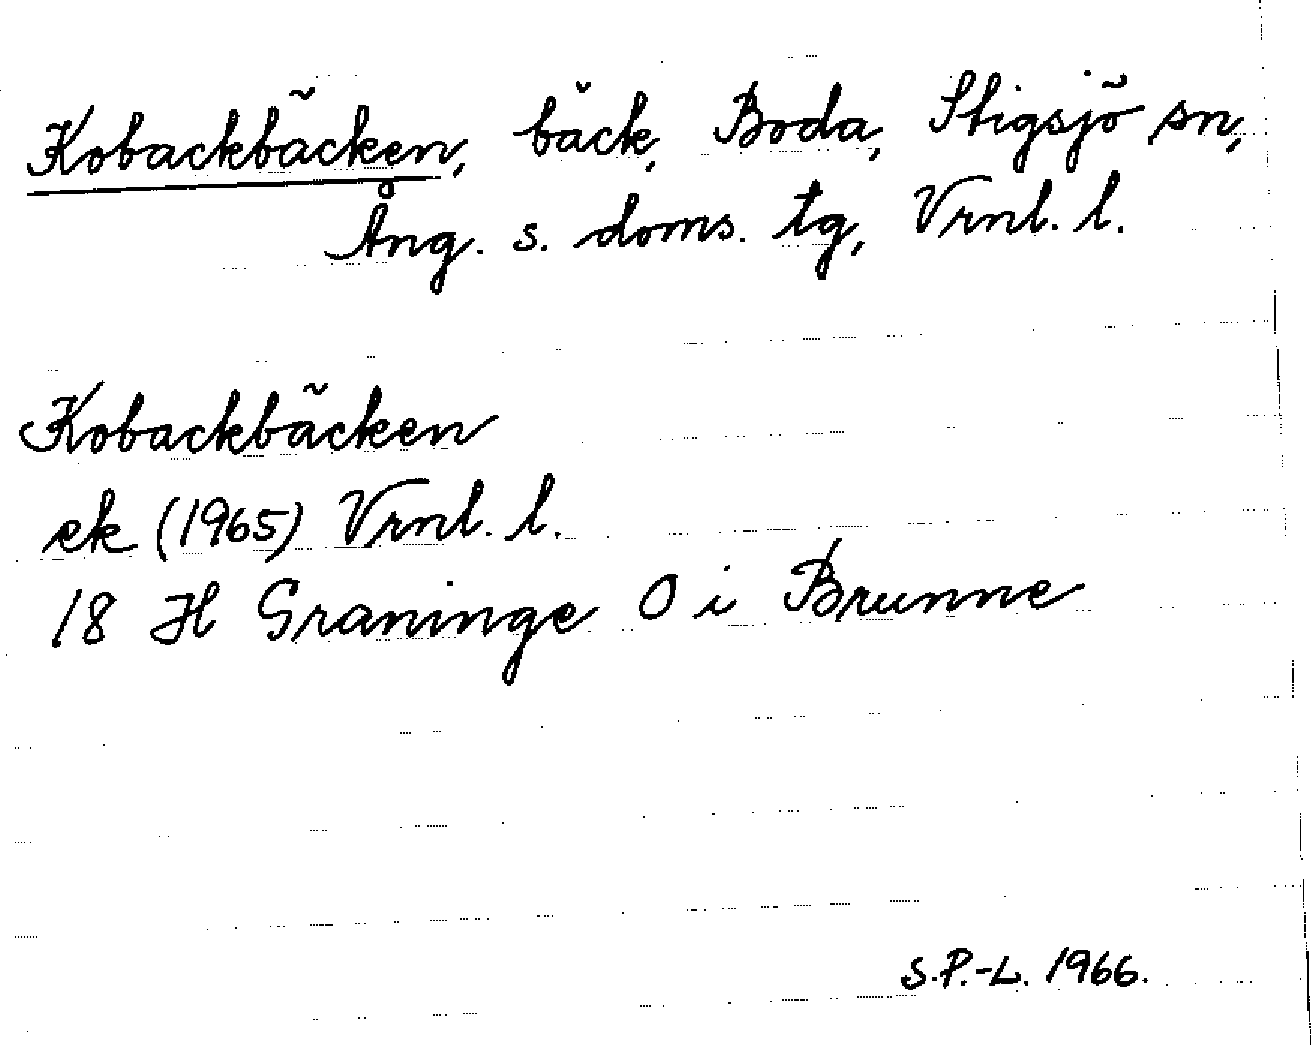 Kobackbäcken, bäck, Boda, Stigsjö sn,
Ång. s. doms. tg, Vrnl. l.
Kobackbäcken
ek (1965) Vrnl. l.
18 H Graninge O i Brunne
S.P.-L. 1966.